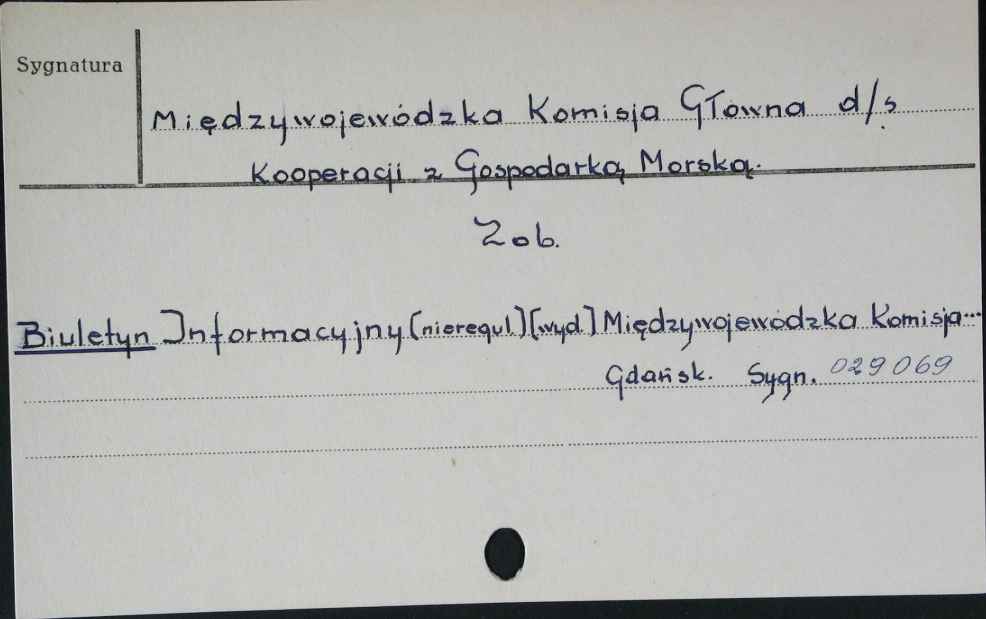 Sygnatura
Międzywojewódzka Komisja Główna d/s
Kooperacji z Gospodarką Morską.
Zob.
Biuletyn Informacyjny [nieregul.] [wyd.] Międzywojewódzka Komisja...
Gdańsk. Sygn. 029069